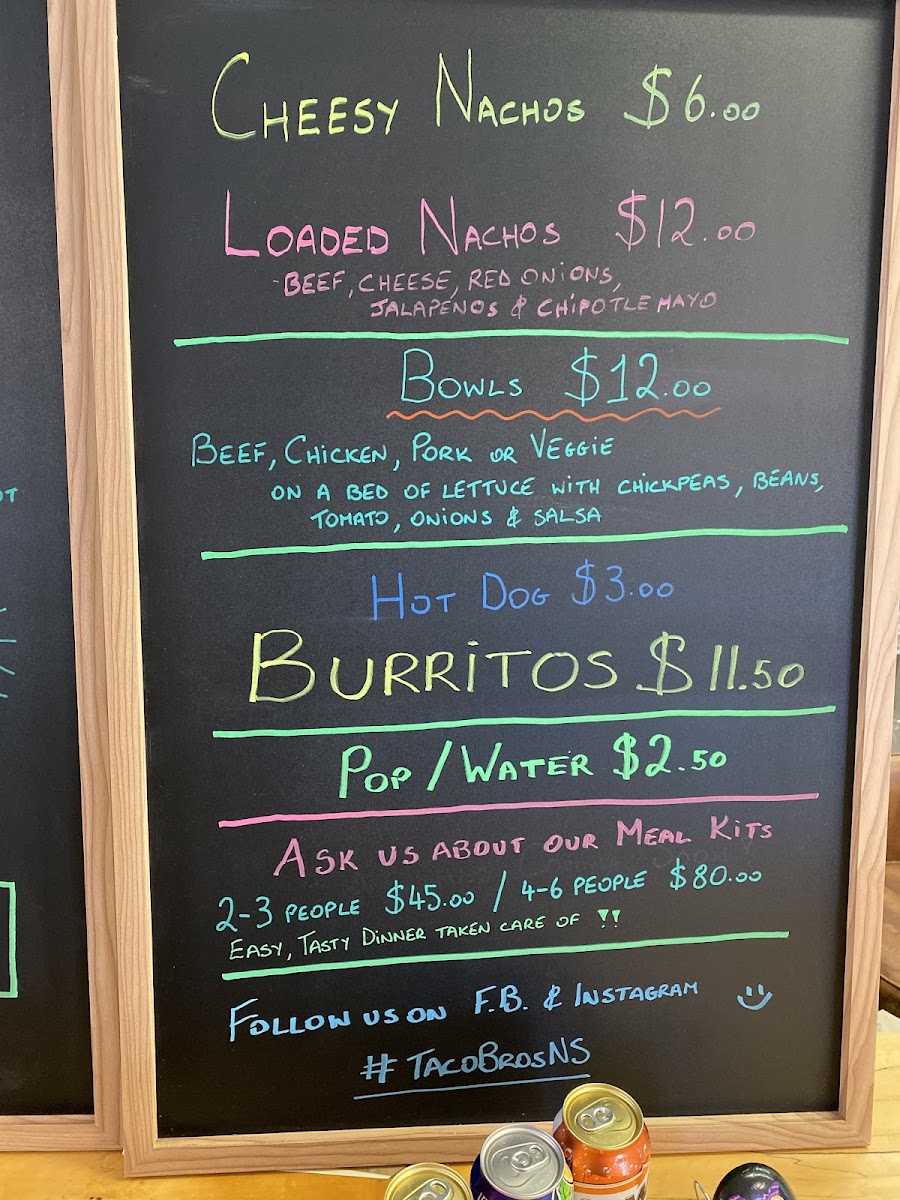 CHEESY NACHOS $6.00
LOADED NACHOS $12.00
-BEEF, CHEESE, RED ONIONS,
JALAPENOS & CHIPOTLE MAYO
BOWLS $12.00
BEEF, CHICKEN, PORK OR VEGGIE
ON A BED OF LETTUCE WITH CHICKPEAS, BEANS,
TOMATO, ONIONS & SALSA
HOT DOG $3.00
BURRITOS $11.50
POP/WATER $2.50
ASK US ABOUT OUR MEAL KITS
2-3 PEOPLE $45.00 / 4-6 PEOPLE $80.00
EASY, TASTY DINNER TAKEN CARE OF !!
FOLLOW US ON F.B. & INSTAGRAM
#TACOBROSNS